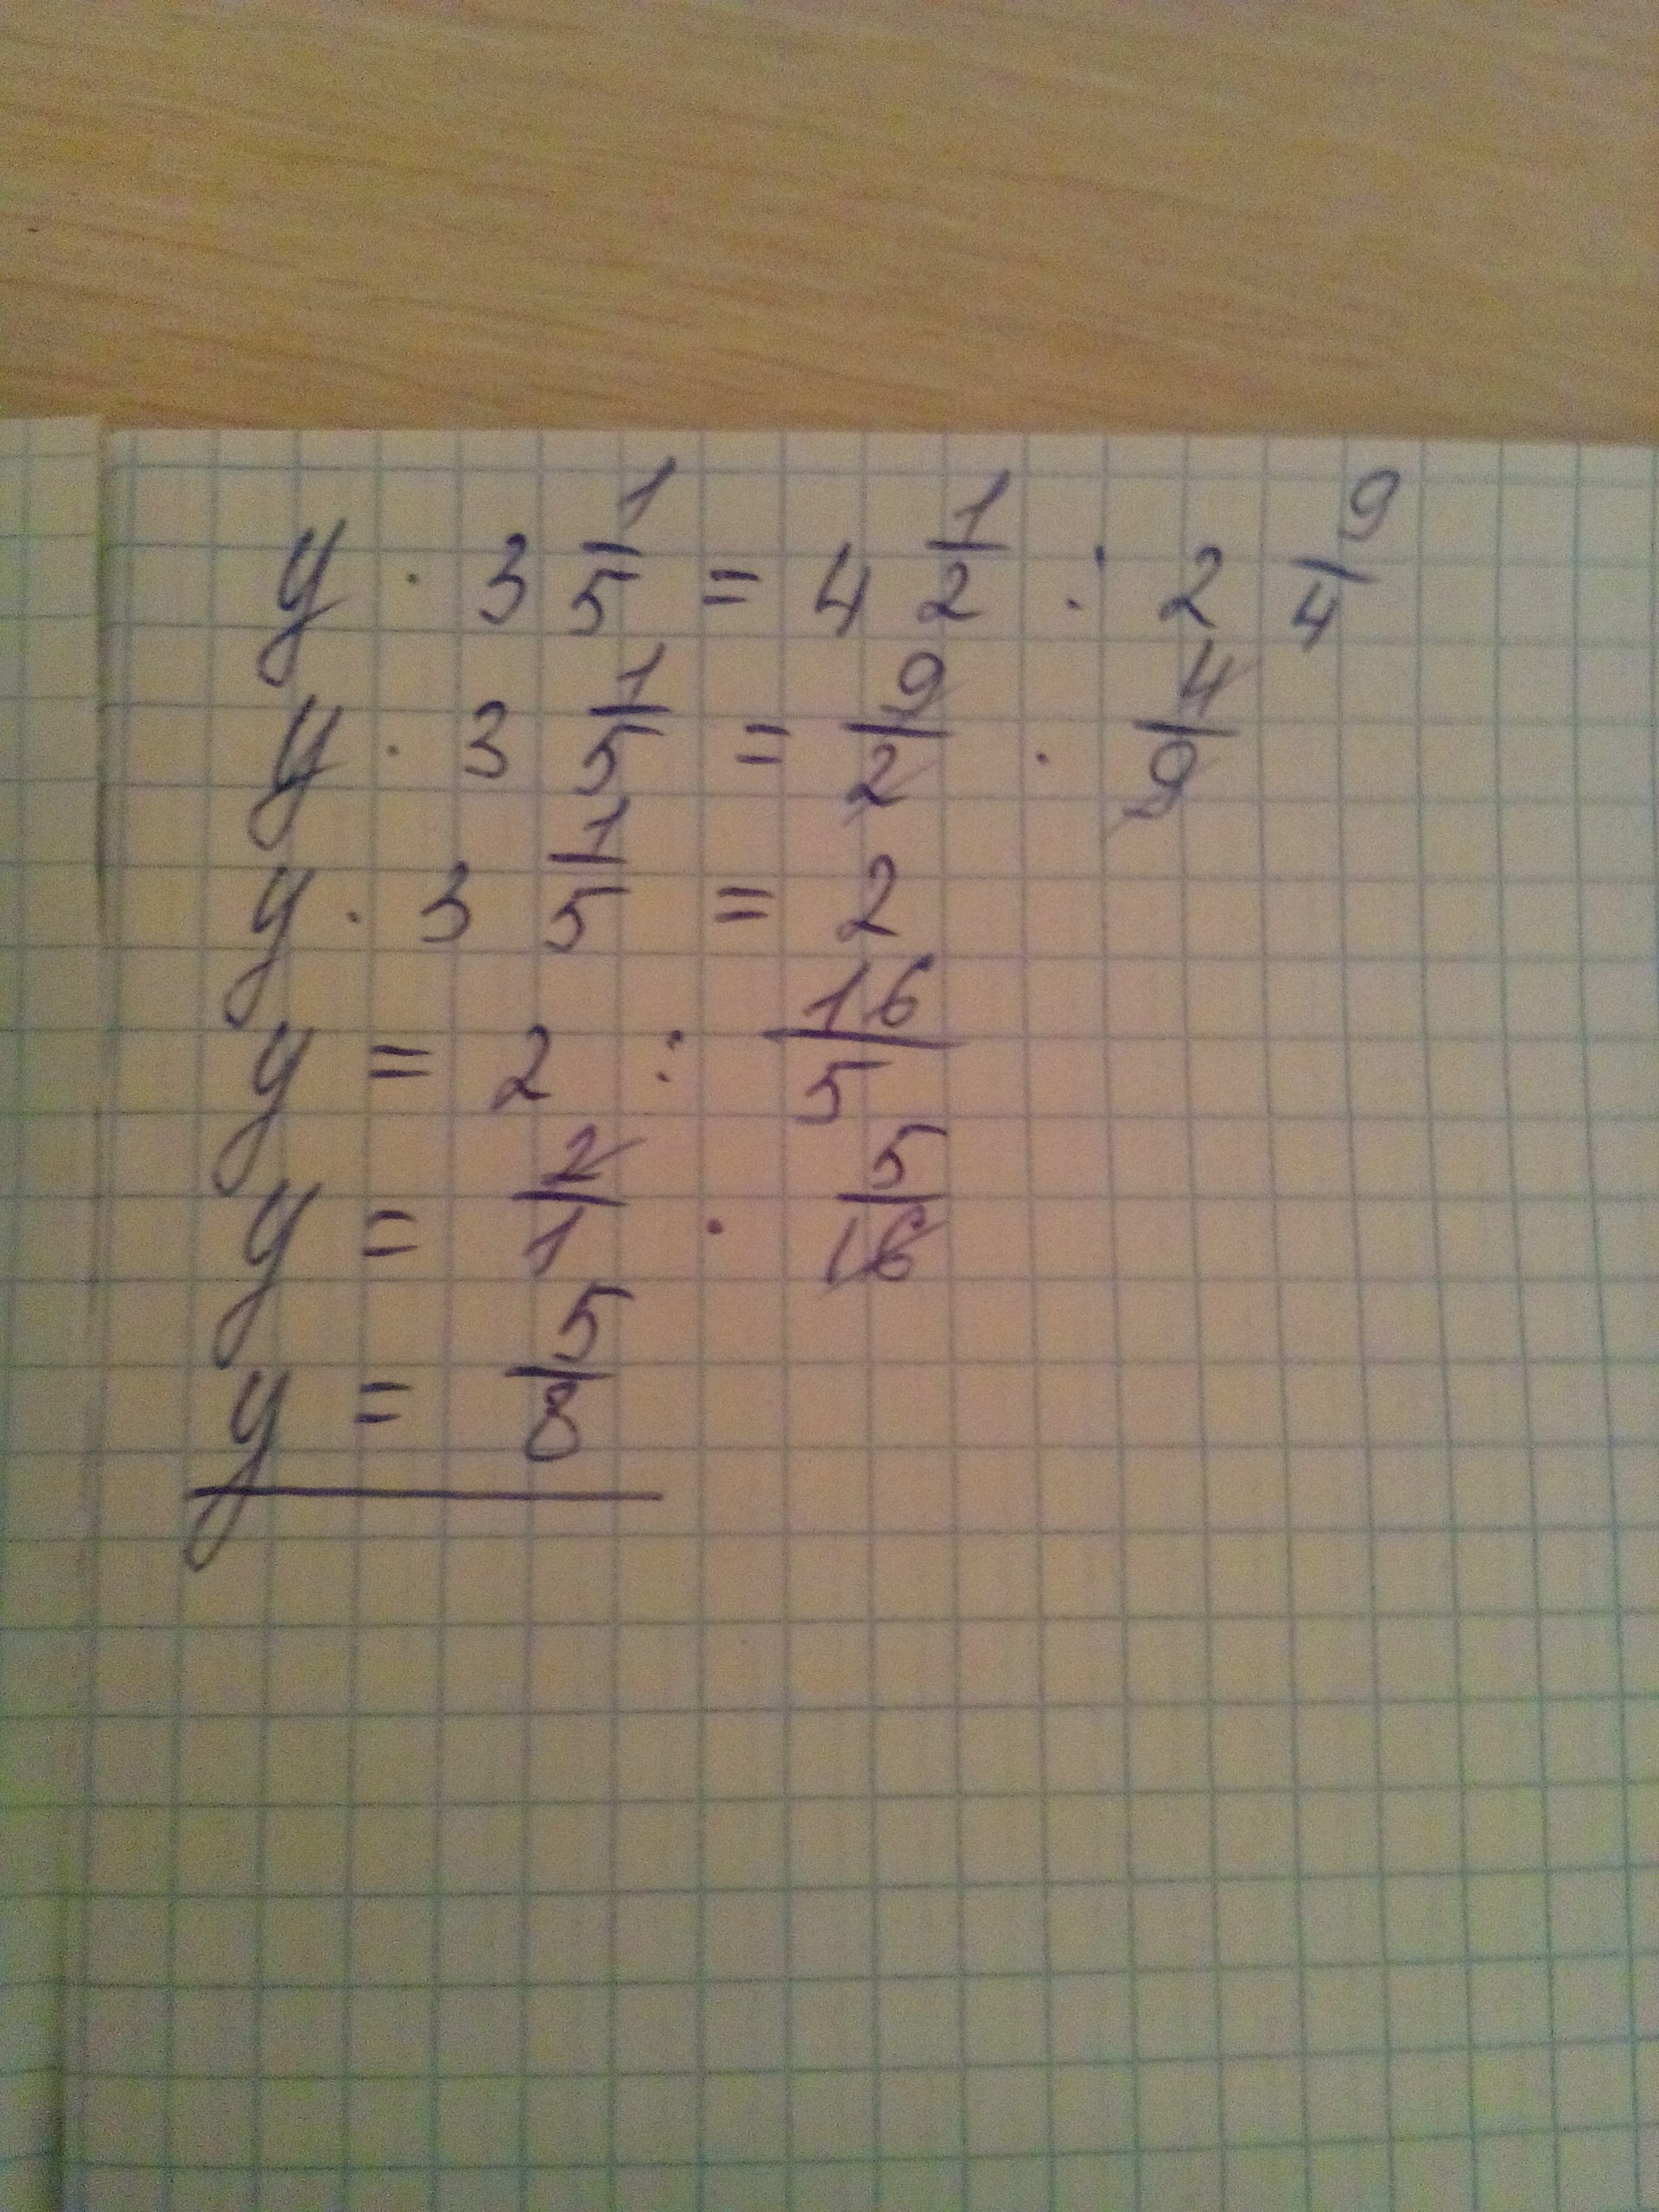 y · 3 1/5 = 4 1/2 : 2 9/4
y · 3 1/5 = 9/2 · 4/9
y · 3 1/5 = 2
y = 2 : 16/5
y = 2/1 · 5/16
y = 5/8